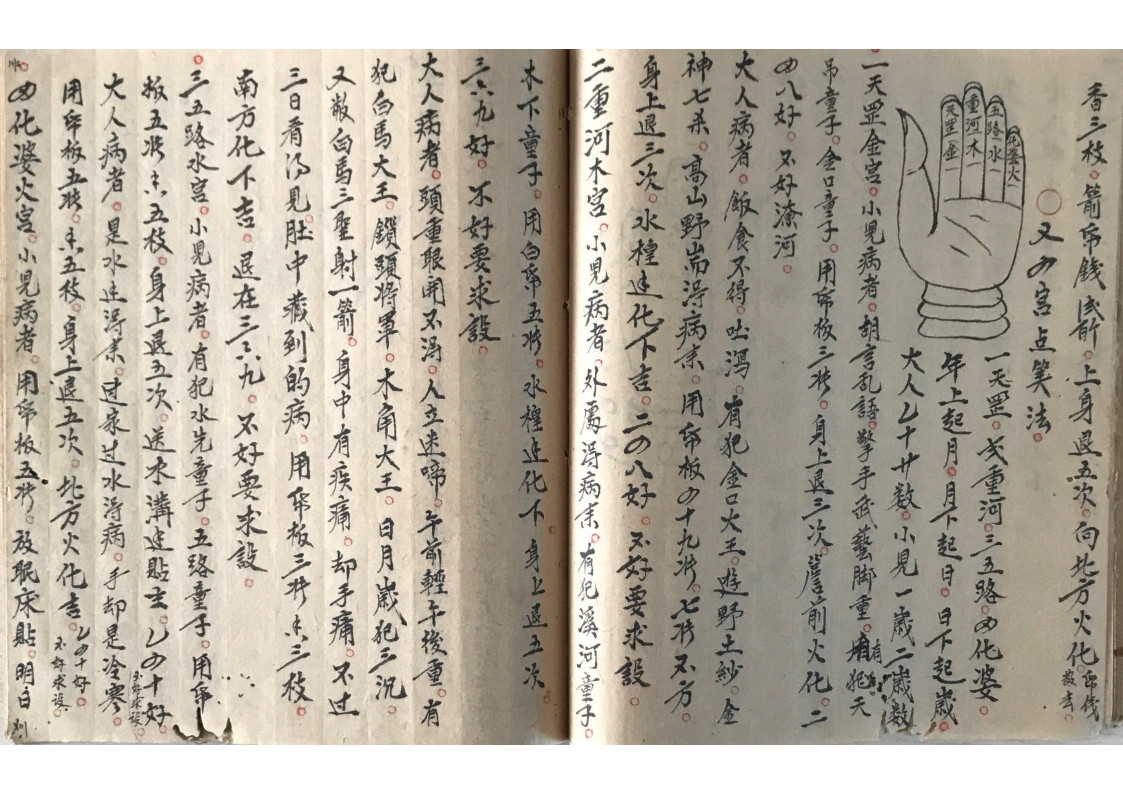 香三枝。箭帋錢底所。上身退五次。向北方火化。帋伐散吉。
又四宮点筭法。
化婆火一
五路水一
重河木一
天罡金一
一天罡。弍重河。三五路。四化婆。
年上起月。月下起日。日下起歲。
大人乙十廿数。小児一歲二歲数
一天罡金宮。小児病者。胡言乱語。擎手武藝脚重。有犯天
吊童子。金口童子。用帋板三张。身上退三次。崖前火化二
四八好。不好潦河。
大人病者。飯食不得。吐瀉。有犯金口大王。遊野土紗金
神七杀。高山野岩得病來。用帋板四十九张。七张不方
身上退三次。水桯边化下吉。二四八好。不好要求設。
二重河木宮。小児病者。外處得病來。有犯溪河童子。
木下童子。用白帋五张。水桯边化下。身上退五次
三六九好。不好要求設。
大人病者。頭重眼開不得。人立迷啼。午前輕午後重。有
犯白馬大王。鎖頭将軍。木角大王。日月歲犯三沉
又散白馬三聖射一箭。身中有疾痛。却手痛。不过
三日看得見。肚中藏到的病。用帋板三张。香三枝
南方化下吉。退在三六九。不好要求設。
三五路水宮。小児病者。有犯水先童子。五路童子。用帋
板五张。香五枝。身上退五次。送水溝边貼吉。乙四十好。不好求設。
大人病者。是水边得來。过家过水得病。手却是冷寒。
用帋板五张。香五枝。身上退五次。北方火化吉。乙四十好。不好求設。
四化婆火宮。小児病者。用帋板五张。放眠床貼。明白